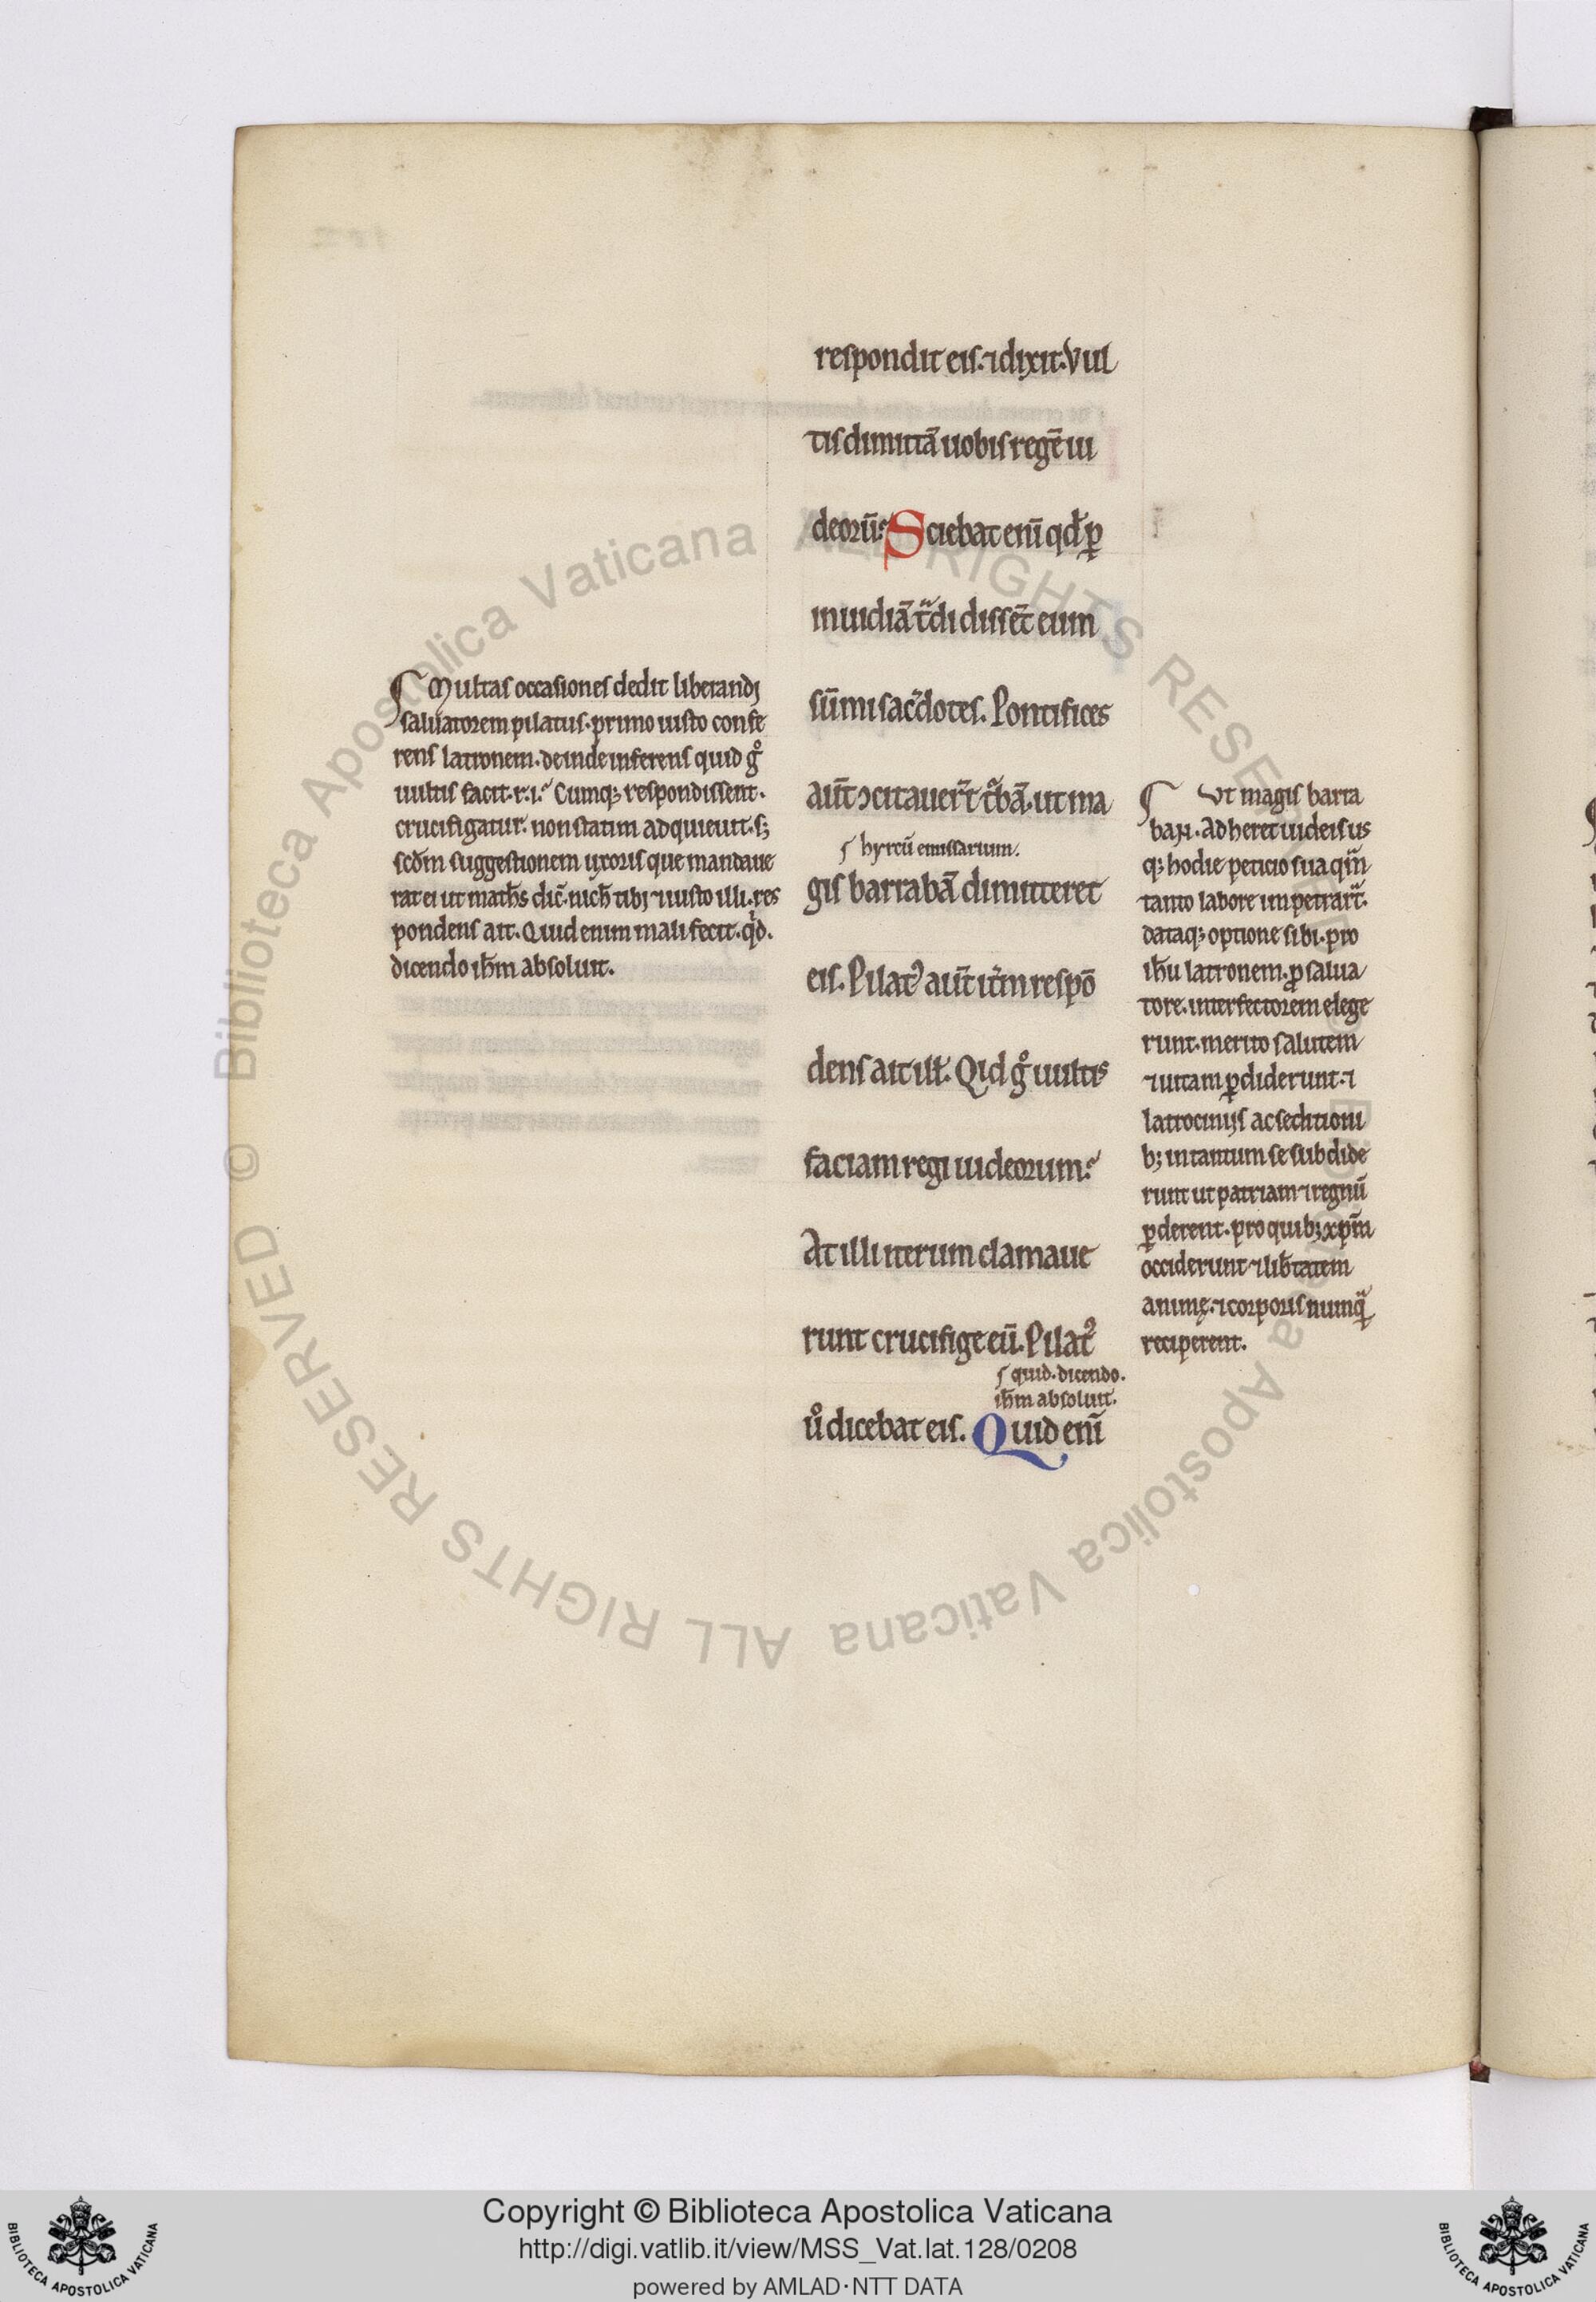 respondit eis. ⁊ dixit. Vul
tis dimittā uobis regē iu
deorū? Sciebat enī qđ ꝑ
inuidiā t̄didissēt eum
sūmi sac̄dotes. Pontifices
aūt ↄcitauer̄t t̄bā. ut ma
ſ hyrcū emissarium.
gis barrabā dimitteret
eis. Pilatꝰ aūt it̄m respō
dens ait ill̄. Qid gͦ uultis
faciam regi iudeorum?
At illi iterum clamaue
runt crucifige eū. Pilatꝰ
ſ quid. dicendo.
ih̄m absoluit.
uͦ dicebat eis. Quid enī
Multas occasiones dedit liberandi
saluatorem pilatus. primo iusto confe
rens latronem. deinde inferens quid gͦ
uultis facit. r. i. Cumq; respondissent.
crucifigatur. non statim adquieuit. s;
scd̄m suggestionem uxoris que mandaue
rat ei ut math̄s dic̄. nich̄ tibi ⁊ iusto illi. res
pondens ait. Quid enim mali fecit. q̄d.
dicendo ih̄m absoluit.
Vt magis barra
ban. Adheret iudeis us
q; hodie peticio sua qm̄
tanto labore impetrar̄t.
dataq; optione sibi. pro
ih̄u latronem. ꝓ salua
tore. interfectorem elege
runt. merito salutem
⁊ uitam ꝑdiderunt. ⁊
latrociniis ac seditioni
b; in tantum se subdide
runt ut patriam ⁊ regnū
ꝑderent. pro quib; xp̄m
occiderunt ⁊ lib̄tatem
animę. ⁊ corporis numq̄
reciperent.
© Biblioteca Apostolica Vaticana ALL RIGHTS RESERVED © Biblioteca Apostolica Vaticana ALL RIGHTS RESERVED
Copyright © Biblioteca Apostolica Vaticana
http://digi.vatlib.it/view/MSS_Vat.lat.128/0208
powered by AMLAD·NTT DATA
BIBLIOTECA APOSTOLICA VATICANA
BIBLIOTECA APOSTOLICA VATICANA